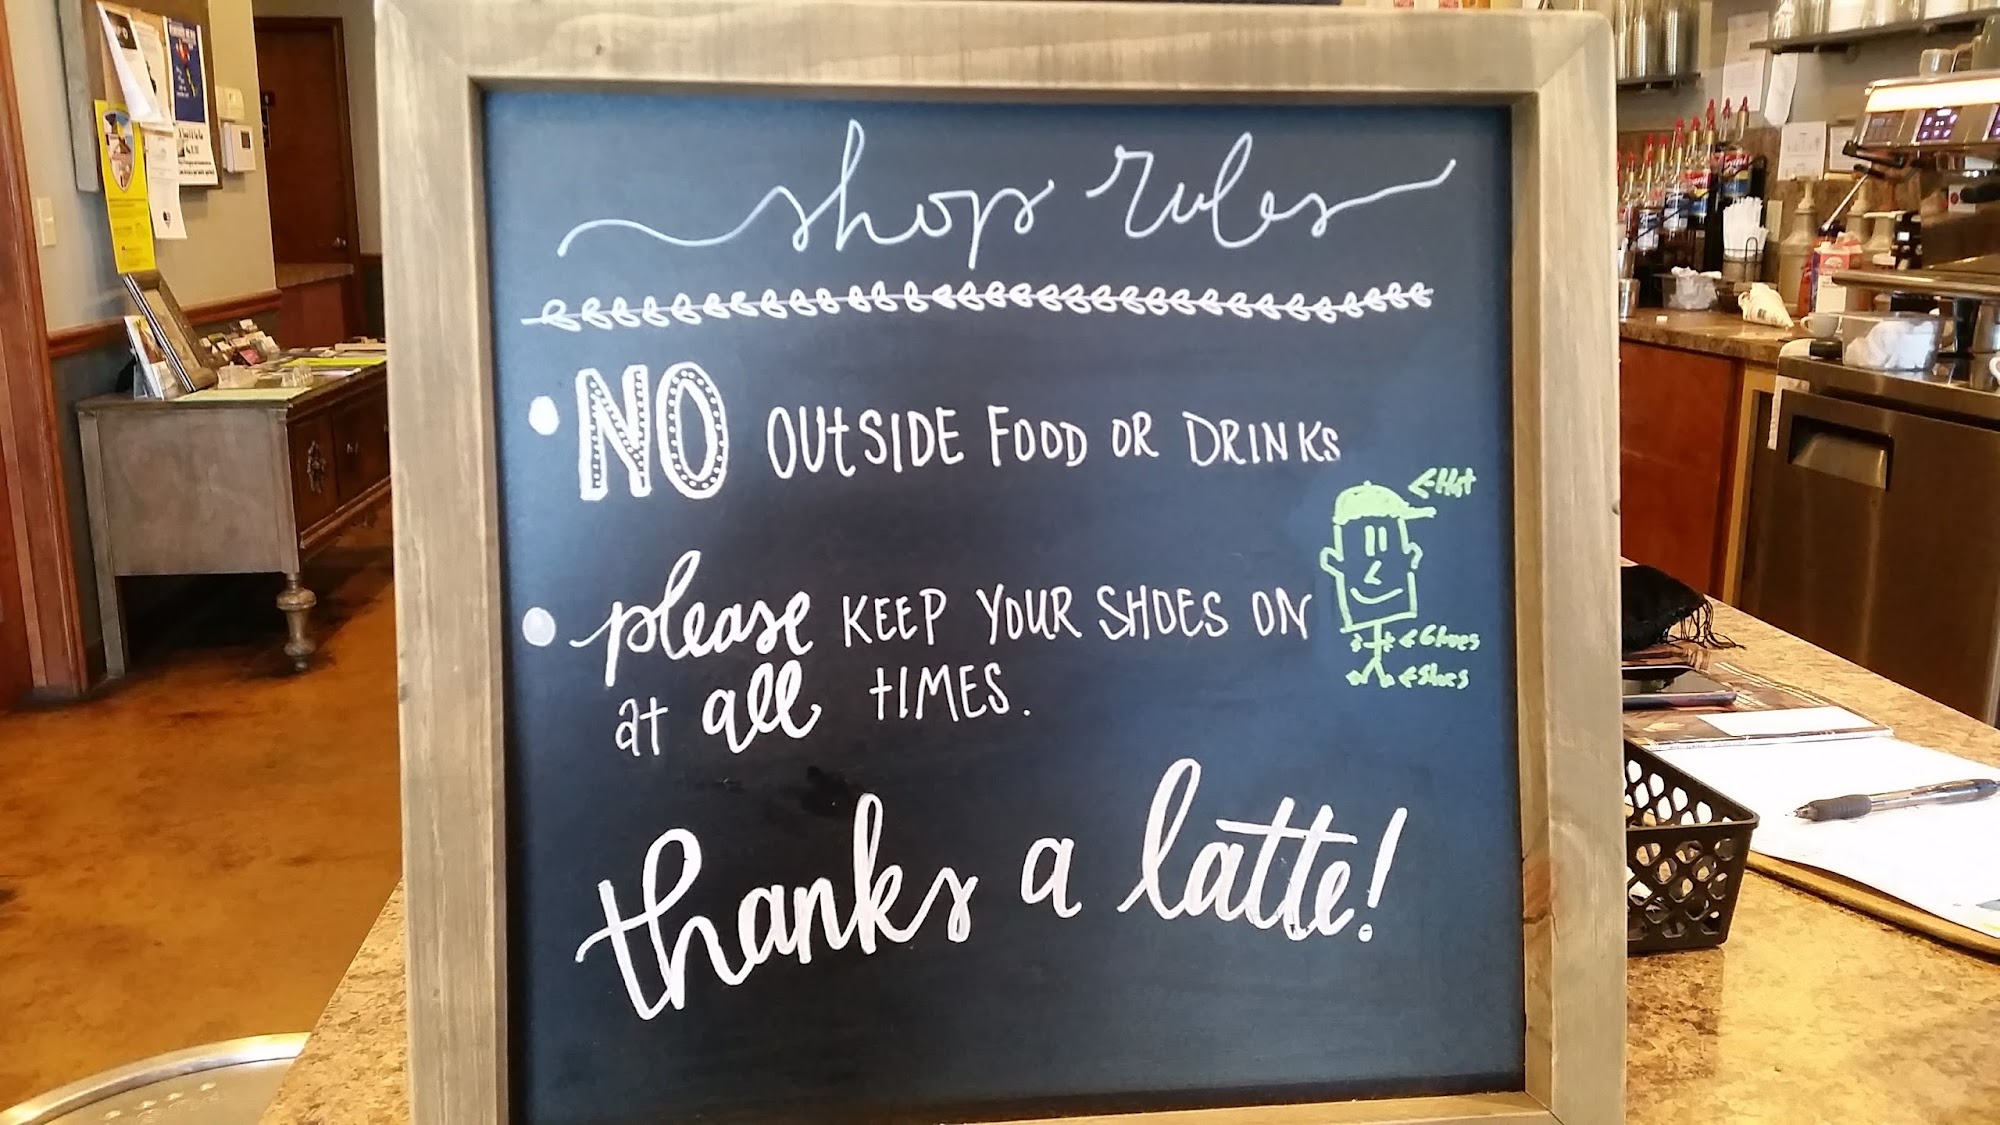 shop rules
• NO OUtSIDE FOOD OR DRINKS
<Hat
• please KEEP YOUR SHOES ON
<Gloves
at all tIMES.
<Shoes
thanks a latte!